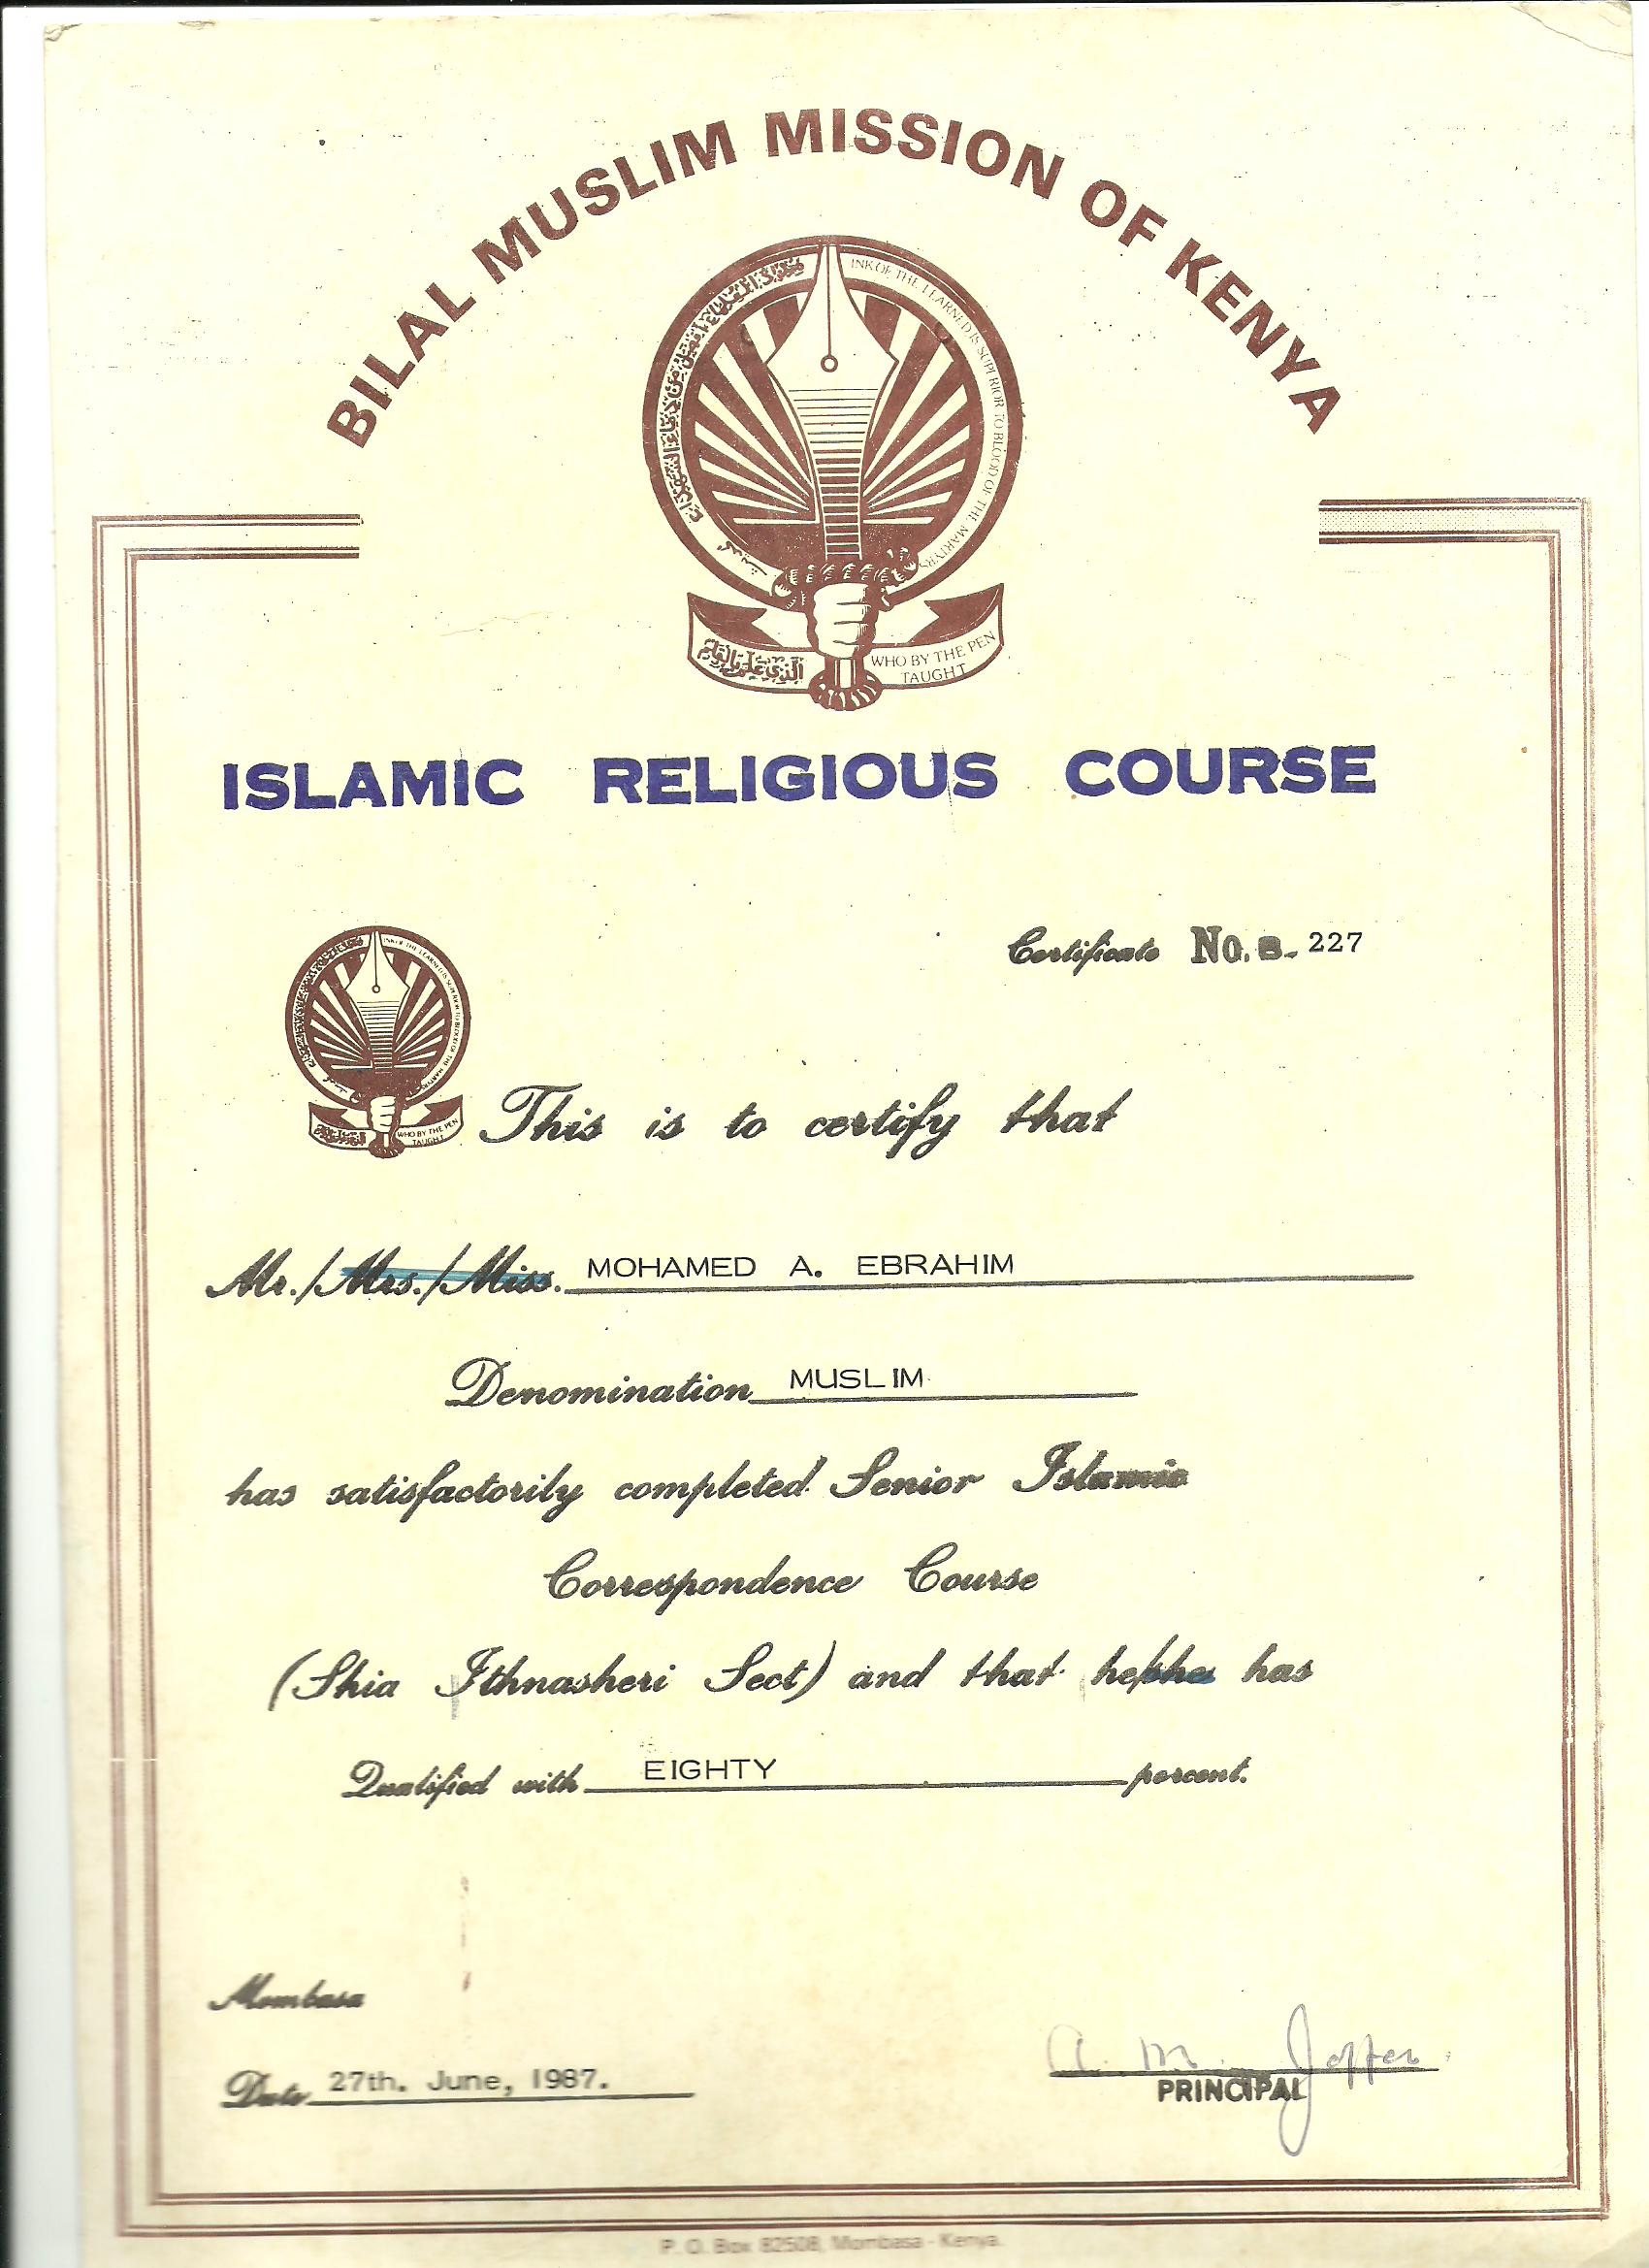 BILAL MUSLIM MISSION OF KENYA
INK OF THE LEARNED IS SUPERIOR TO BLOOD OF THE MARTYRS
الذي علم بالقلم
WHO BY THE PEN
TAUGHT
ISLAMIC RELIGIOUS COURSE
Certificate No. S- 227
WHO BY THE PEN
TAUGHT
This is to certify that
Mr./Mrs./Miss. MOHAMED A. EBRAHIM
Denomination MUSLIM
has satisfactorily completed Senior Islamic
Correspondence Course
(Shia Ithnasheri Sect) and that he/she has
Qualified with EIGHTY percent.
Mombasa
Date 27th. June, 1987.
A. M. Jaffer
PRINCIPAL
P. O. Box 82508, Mombasa - Kenya.